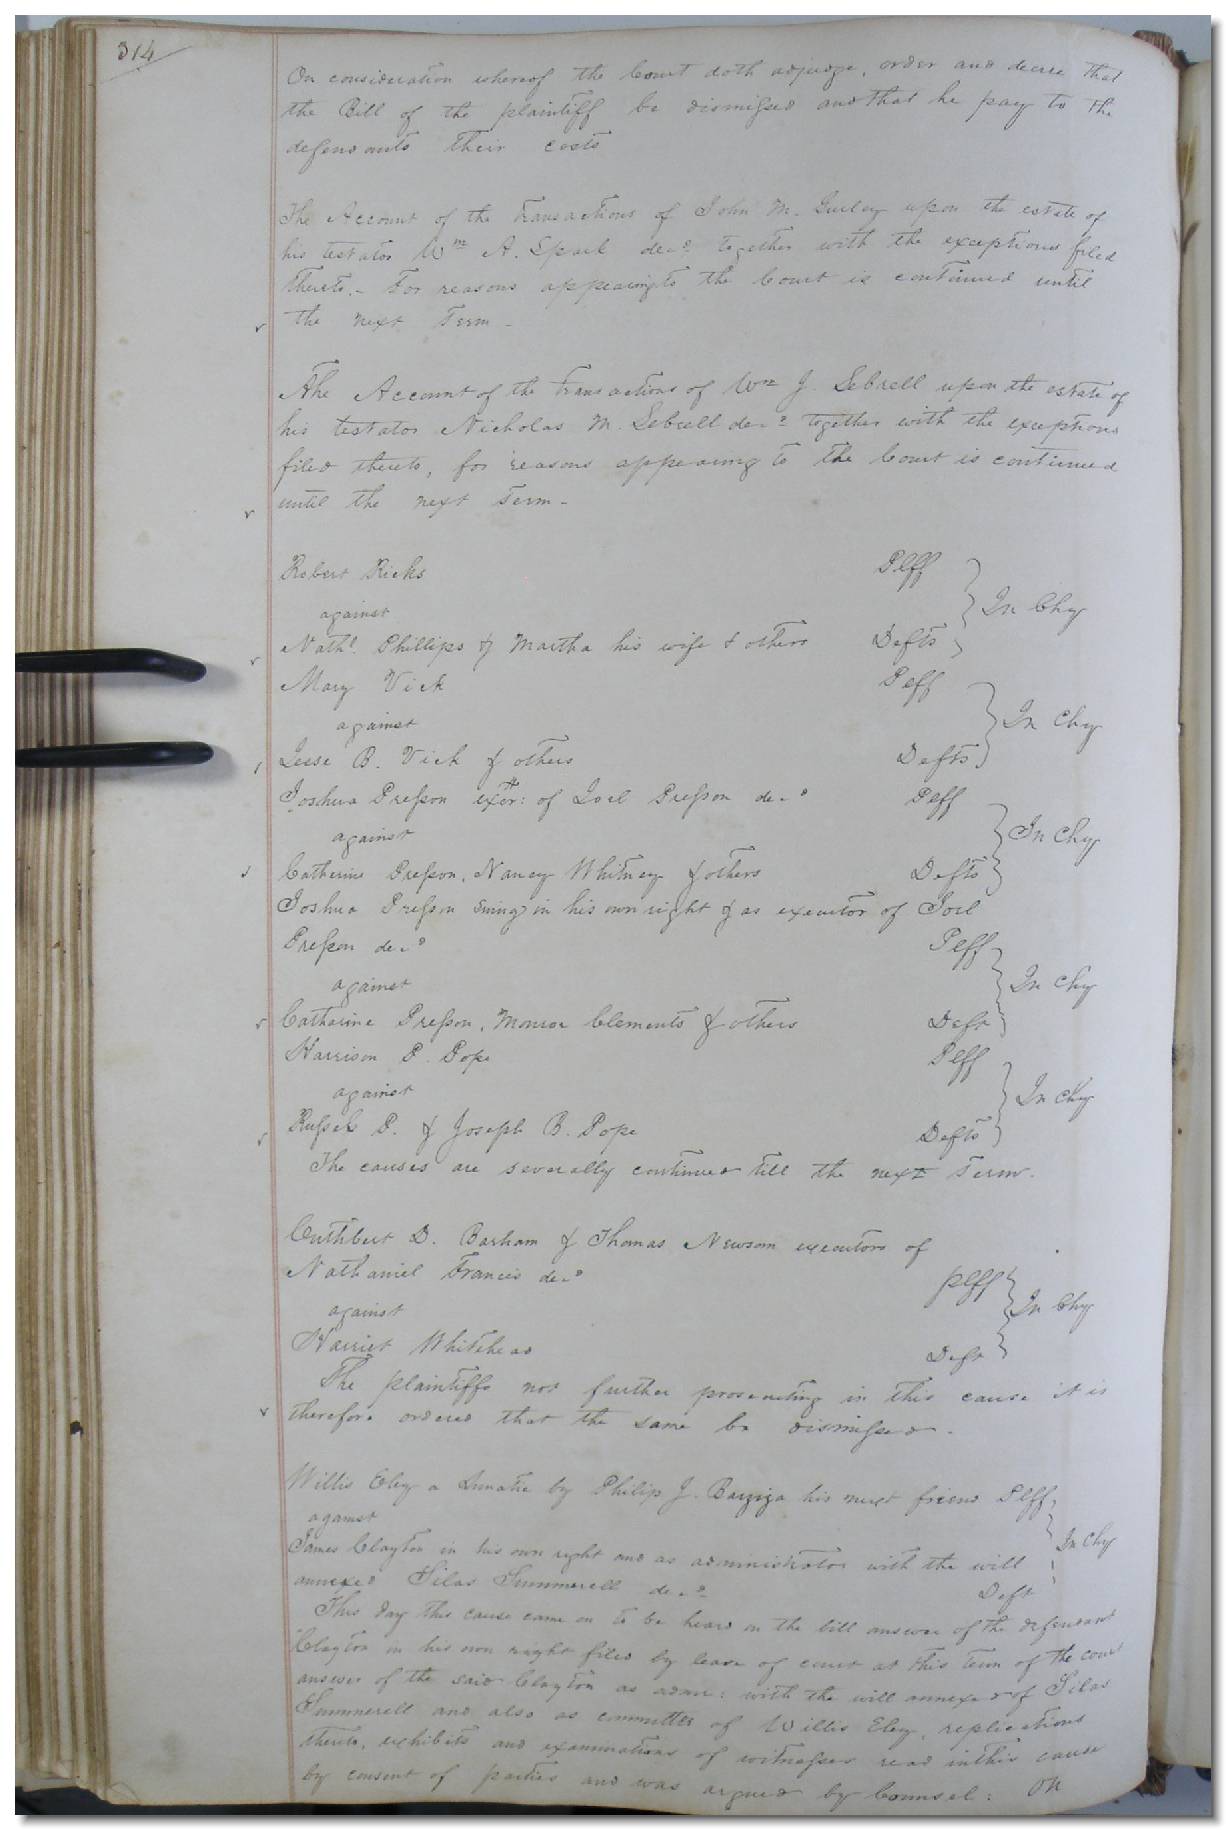 314
On consideration whereof the Court doth adjudge, order and decree that
the Bill of the plaintiff be dismissed and that he pay to the
defendants their costs
The Account of the transactions of John M. Gurley upon the estate of
his testator Wm A. Spark decd. together with the exceptions filed
thereto. - For reasons appearing to the Court is continued until
the next Term -
The Account of the transactions of Wm J. Sebrell upon the estate of
his testator Nicholas M. Sebrell decd together with the exceptions
filed thereto, for reasons appearing to the Court is continued
until the next Term -
Robert Ricks Plff
against In Chy
Nathl. Phillips & Martha his wife & others Defts
Mary Vick Plff
against In Chy
Jesse B. Vick & others Defts
Joshua Presson exor: of Joel Presson decd Plff
against In Chy
Catherine Presson, Nancy Whitney & others Defts
Joshua Presson suing in his own right & as executor of Joel
Presson decd Plff
against In Chy
Catharine Presson, Monroe Clements & others Deft
Harrison P. Pope Plff
against In Chy
Russels P. & Joseph B. Pope Defts
The causes are severally continued till the next Term.
Cuthbert D. Barham & Thomas Newsom executors of
Nathaniel Francis decd plff
against In Chy
Harriet Whitehead Deft
The plaintiffs not further prosecuting in this cause it is
therefore ordered that the same be dismissed.
Willis Eley a Lunatic by Philip J. Barziza his next friend Plff
against In Chy
James Clayton in his own right and as administrator with the will
annexed Silas Summerell decd Deft
This day this cause came on to be heard on the bill answer of the defendant
Clayton in his own right filed by leave of court at this term of the court
answer of the said Clayton as admr: with the will annexed of Silas
Summerell and also as committee of Willis Eley, replications
thereto, exhibits and examinations of witnesses read in this cause
by consent of parties and was argued by Counsel: On